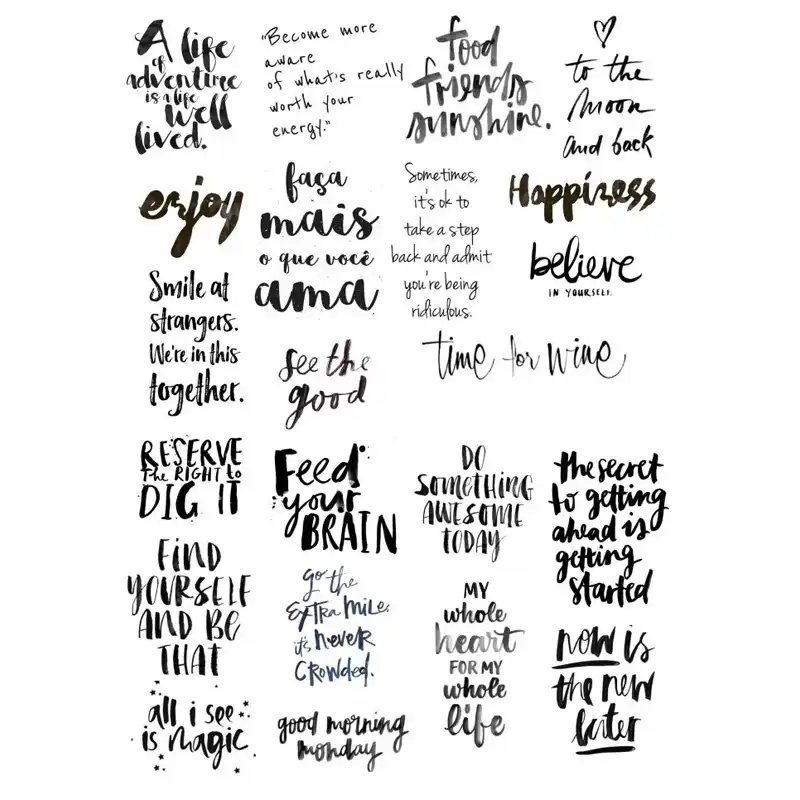 A life
of
adventure
is a life
well
lived.
"Become more
aware
of what's really
worth your
energy."
food
friends
sunshine.
to the
moon
and back
enjoy
faça
mais
o que você
ama
Sometimes,
it's ok to
take a step
back and admit
you're being
ridiculous.
Happiness
believe
IN YOURSELF.
Smile at
strangers.
We're in this
together.
see the
good
time for wine
RESERVE
The RIGHT to
DIG IT
Feed
your
BRAIN
DO
SOMETHING
AWESOME
TODAY
the secret
to getting
ahead is
getting
started
FIND
YOURSELF
AND BE
THAT
go the
EXTRA MILE,
it's NEVER
CROWDED.
MY
whole
heart
FOR MY
whole
life
now is
the new
later
all i see
is magic
good morning
monday